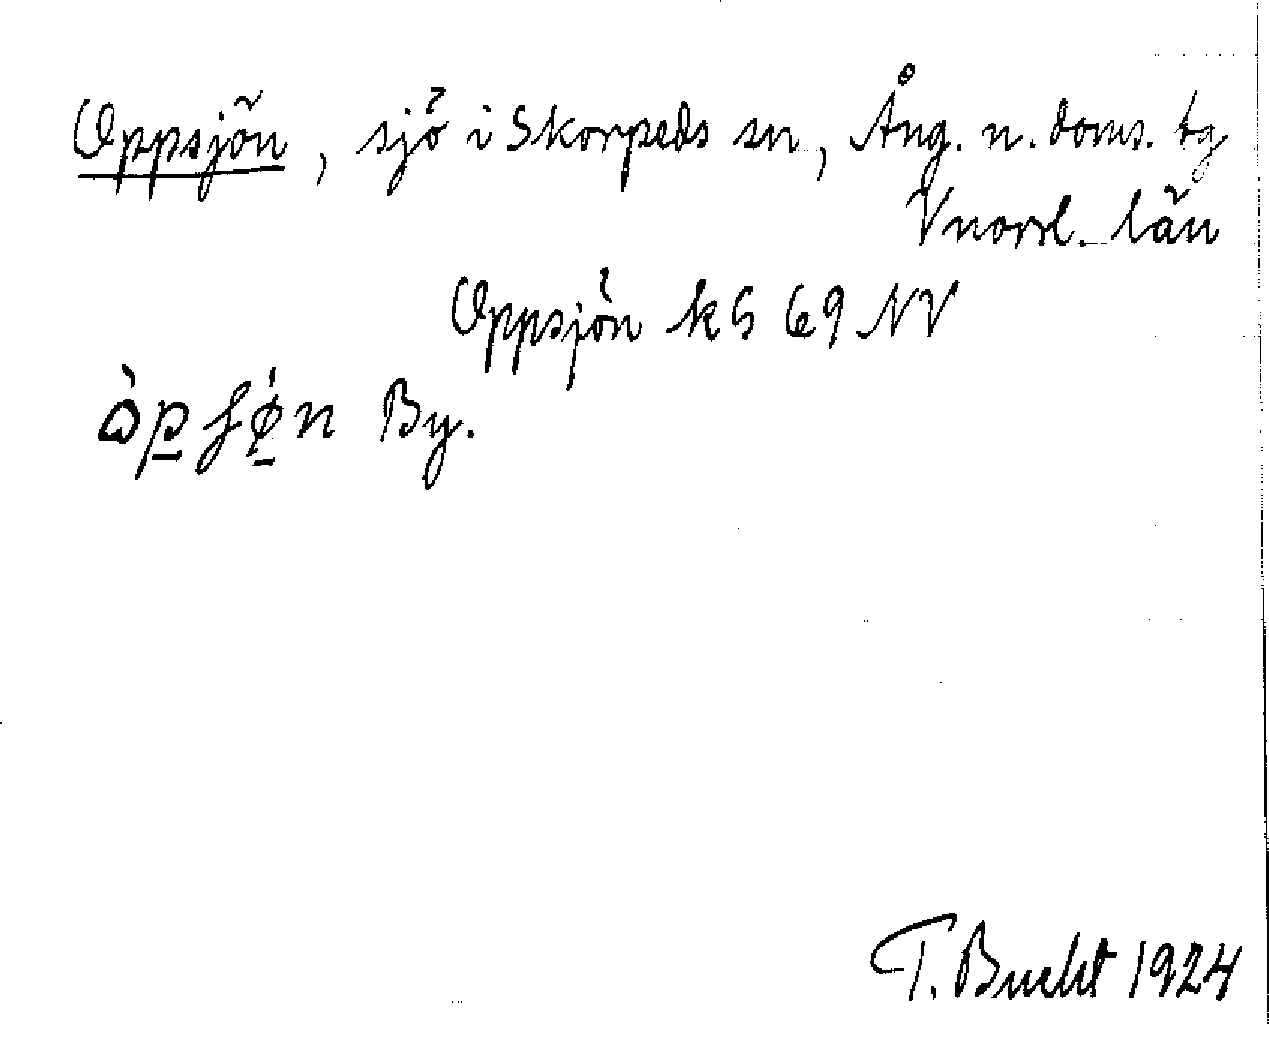 Oppsjön, sjö i Skorpeds sn, Ång. n. doms. tg
Vnorrl. län
Oppsjön kS 69 NV
By.
T. Bucht 1924